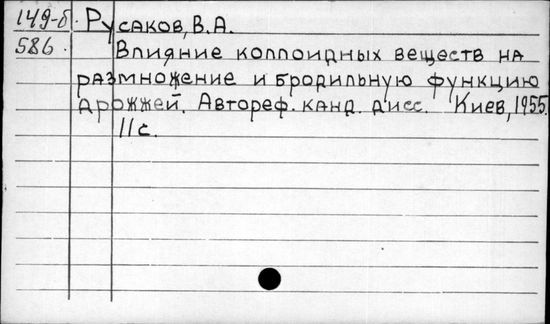 149-б. Русаков, В.А.
586. Влияние коллоидных веществ на
размножение и бродильную функцию
дрожжей. Автореф. канд. дисс. Киев, 1955.
11с.